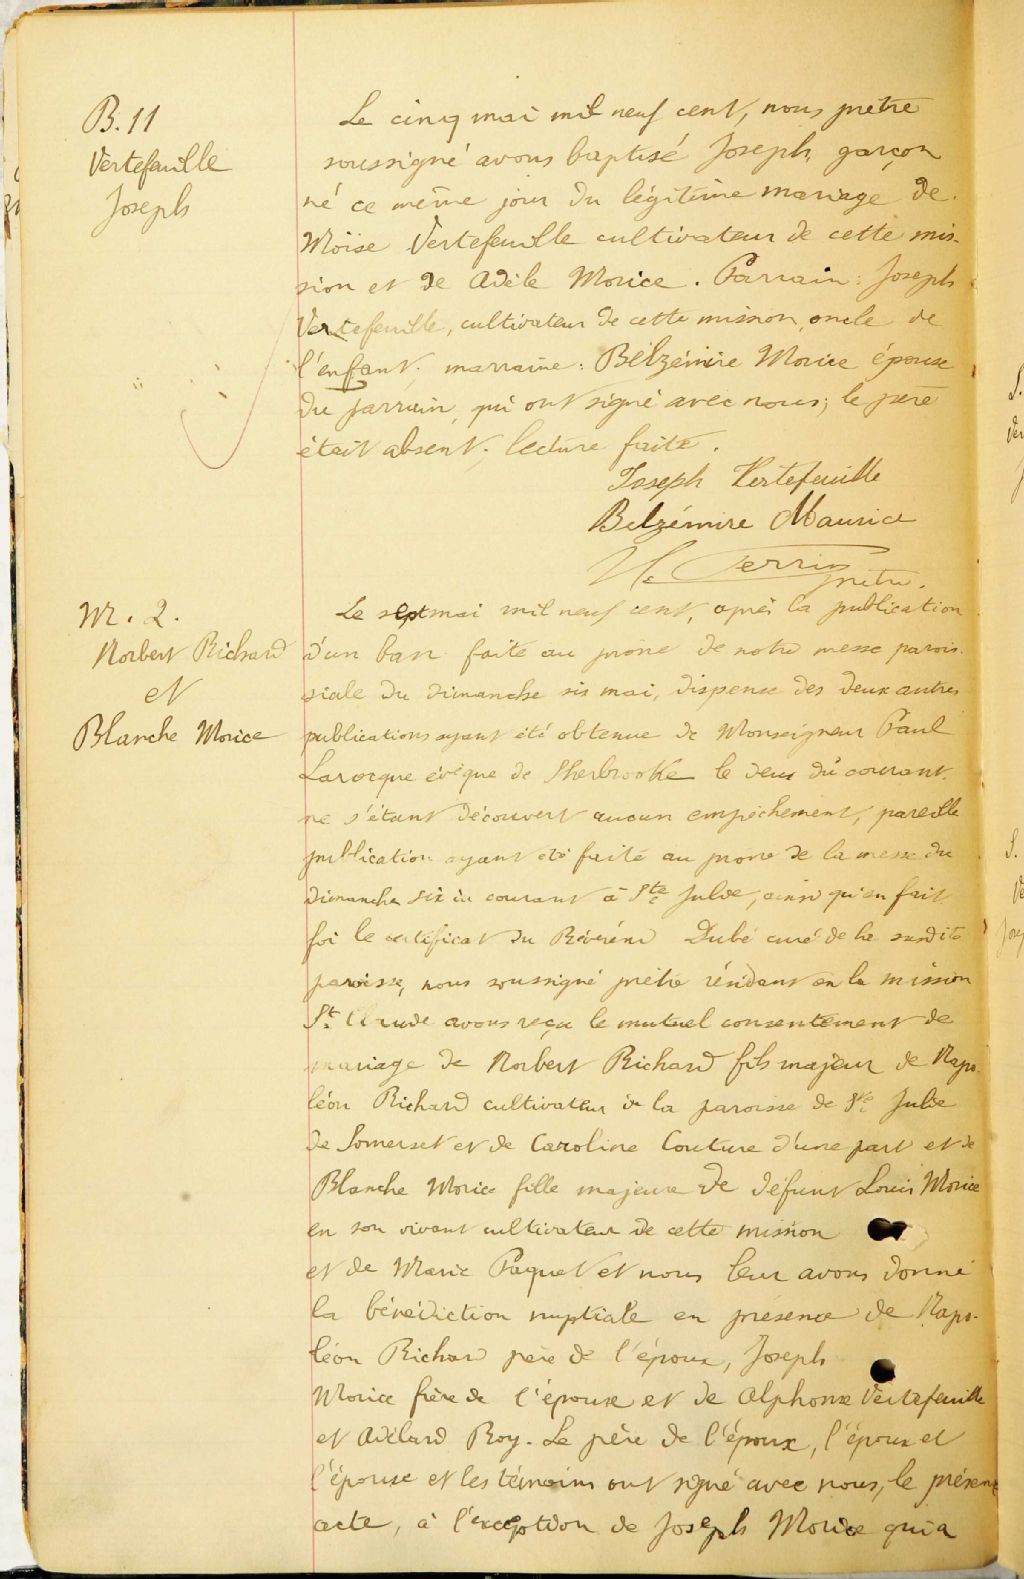 B. 11
Vertefeuille
Joseph
Le cinq mai mil neuf cent, nous prêtre
soussigné avons baptisé Joseph, garçon
né ce même jour du légitime mariage de
Moïse Vertefeuille cultivateur de cette mis-
sion et de Adèle Morice. Parrain: Joseph
Vertefeuille, cultivateur de cette mission, oncle de
l'enfant; marraine: Belzémire Morice épouse
du parrain, qui ont signé avec nous; le père
était absent; lecture faite.
Joseph Vertefeuille
Belzémire Maurice
Perrin
prêtre.
M. 2.
Norbert Richard
et
Blanche Morice
Le sept mai mil neuf cent, après la publication
d'un ban faite au prone de notre messe parois-
siale du dimanche six mai, dispense des deux autres
publications ayant été obtenue de Monseigneur Paul
Larocque évêque de Sherbrooke le deux du courant,
ne s'étant découvert aucun empêchement, pareille
publication ayant été faite au prone de la messe du
dimanche six du courant à Ste Julie, ainsi qu'en fait
foi le certificat du Révérend Dubé curé de la susdite
paroisse, nous soussigné prêtre résidant en la mission
St Claude avons reçu le mutuel consentement de
mariage de Norbert Richard fils majeur de Napo-
léon Richard cultivateur de la paroisse de Ste Julie
de Somerset et de Caroline Couture d'une part et de
Blanche Morice fille majeure de défunt Louis Morice
en son vivant cultivateur de cette mission
et de Marie Paquet et nous leur avons donné
la bénédiction nuptiale en présence de Napo-
léon Richard père de l'époux, Joseph
Morice frère de l'épouse et de Alphonse Vertefeuille
et Adélard Roy. Le père de l'époux, l'époux et
l'épouse et les témoins ont signé avec nous, le présent
acte, à l'exception de Joseph Morice qui a